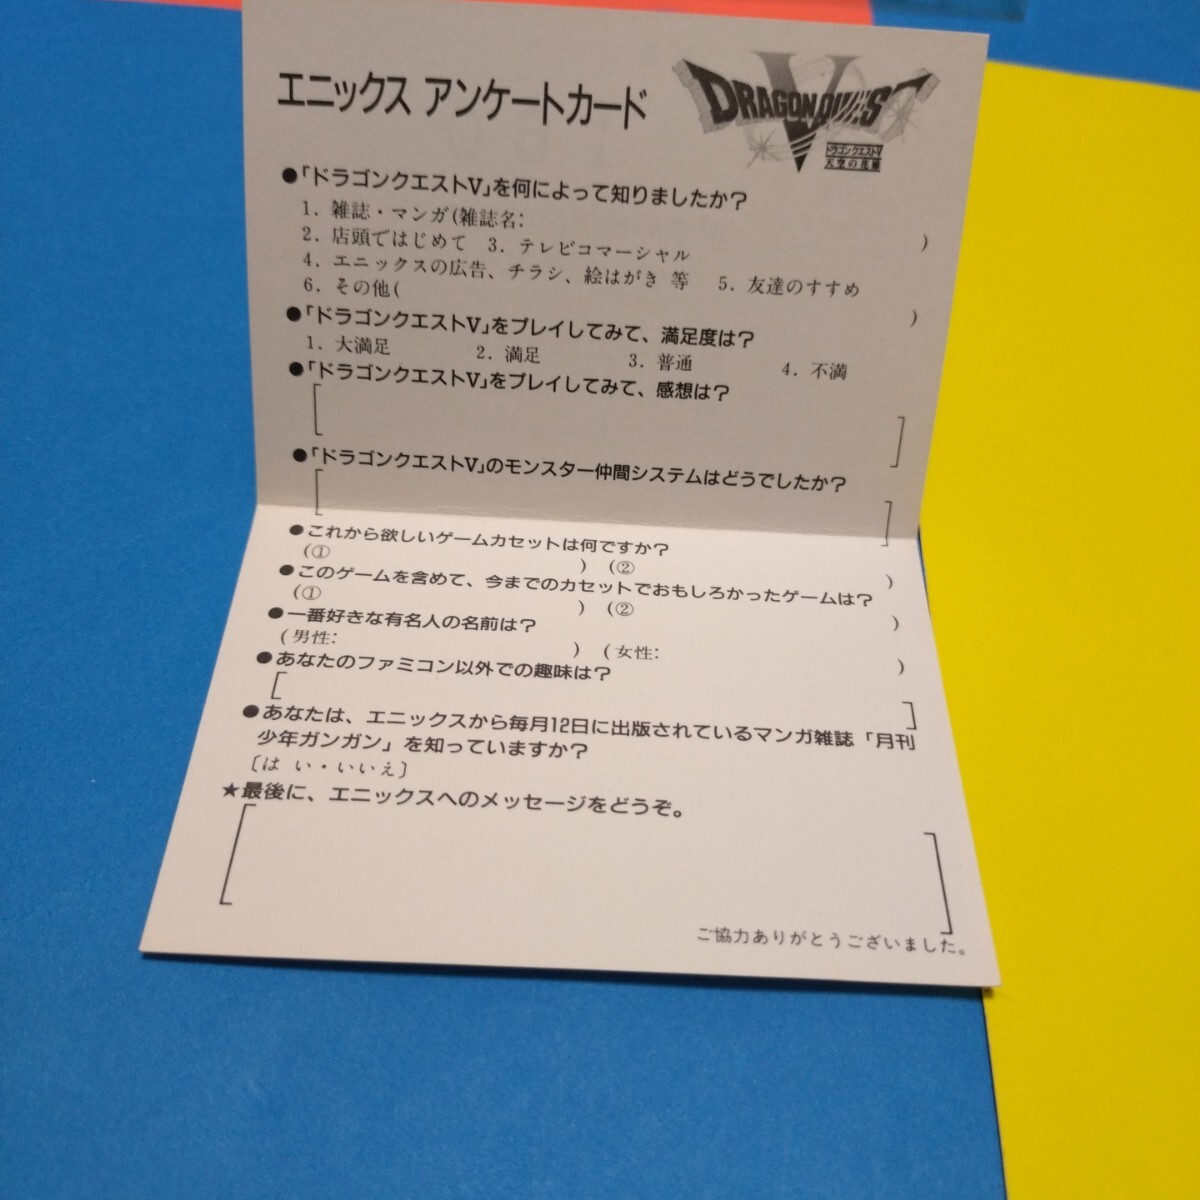 エニックス アンケートカード
DRAGON QUEST V
ドラゴンクエストV
天空の花嫁
●「ドラゴンクエストV」を何によって知りましたか?
1. 雑誌・マンガ(雑誌名: )
2. 店頭ではじめて 3. テレビコマーシャル
4. エニックスの広告、チラシ、絵はがき 等 5. 友達のすすめ
6. その他( )
●「ドラゴンクエストV」をプレイしてみて、満足度は?
1. 大満足 2. 満足 3. 普通 4. 不満
●「ドラゴンクエストV」をプレイしてみて、感想は?
[ ]
●「ドラゴンクエストV」のモンスター仲間システムはどうでしたか?
[ ]
●これから欲しいゲームカセットは何ですか?
(① ) (② )
●このゲームを含めて、今までのカセットでおもしろかったゲームは?
(① ) (② )
●一番好きな有名人の名前は?
(男性: ) (女性: )
●あなたのファミコン以外での趣味は?
[ ]
●あなたは、エニックスから毎月12日に出版されているマンガ雑誌「月刊
少年ガンガン」を知っていますか?
〔は い・いいえ〕
★最後に、エニックスへのメッセージをどうぞ。
[ ]
ご協力ありがとうございました。